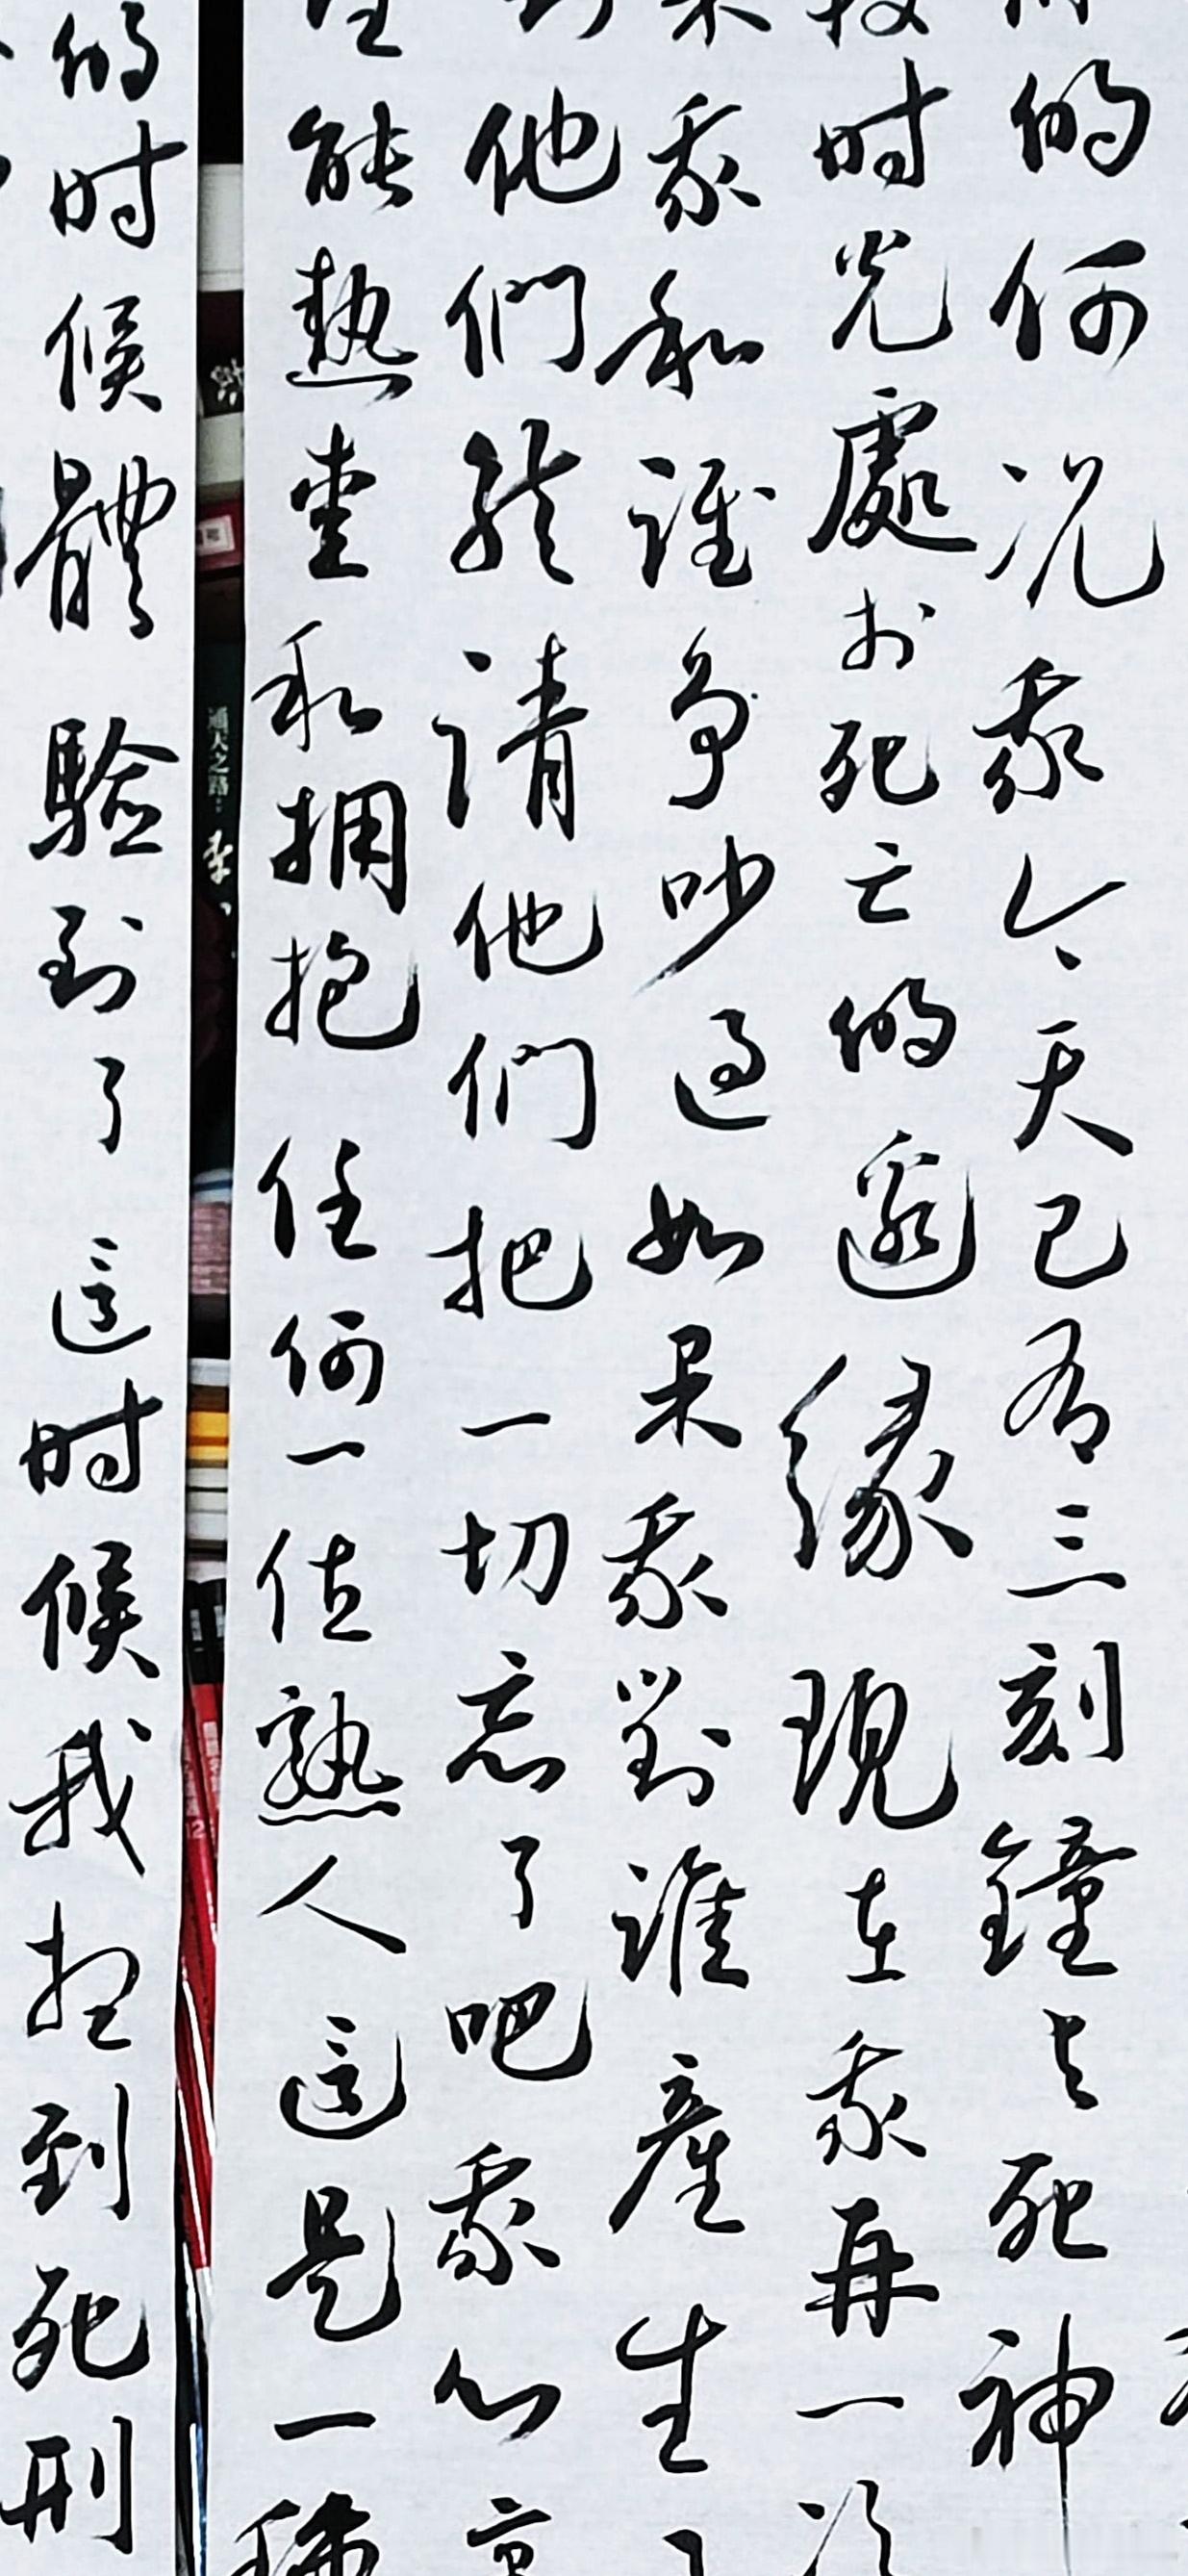 的何况我今天已有三刻鐘与死神
时光處於死亡的邊緣现在我再一次
我和谁争吵過如果我對誰產生了
他們能請他们把一切忘了吧我心
能熱愛和拥抱任何一位熟人這是一種
的时候體驗到了這时候我想到死刑
通天之路
李